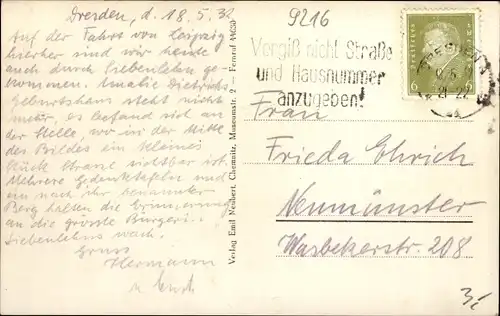 Dresden, d. 18.5.32
Auf der Fahrt von Leipzig
hierher sind wir heute
auch durch Siebenlehn ge-
kommen. Amalie Dietrichs
Geburtshaus steht nicht
mehr, es befand sich an
der Stelle, wo in der Mitte
des Bildes ein kleines
Stück Strasse sichtbar ist.
Mehrere Gedenktafeln und
ein nach ihr benannter
Berg halten die Erinnerung
an die grösste Bürgerin
Siebenlehns wach.
Gruss
Hermann
Verlag Emil Neubert, Chemnitz, Museumstr. 2 – Fernruf 44630
9216
Vergiß nicht Straße
und Hausnummer
anzugeben!
DRESDEN
21-22
Deutsches Reich
6 6
Frau
Frieda Ehrich
Neumünster
Wasbekerstr. 208